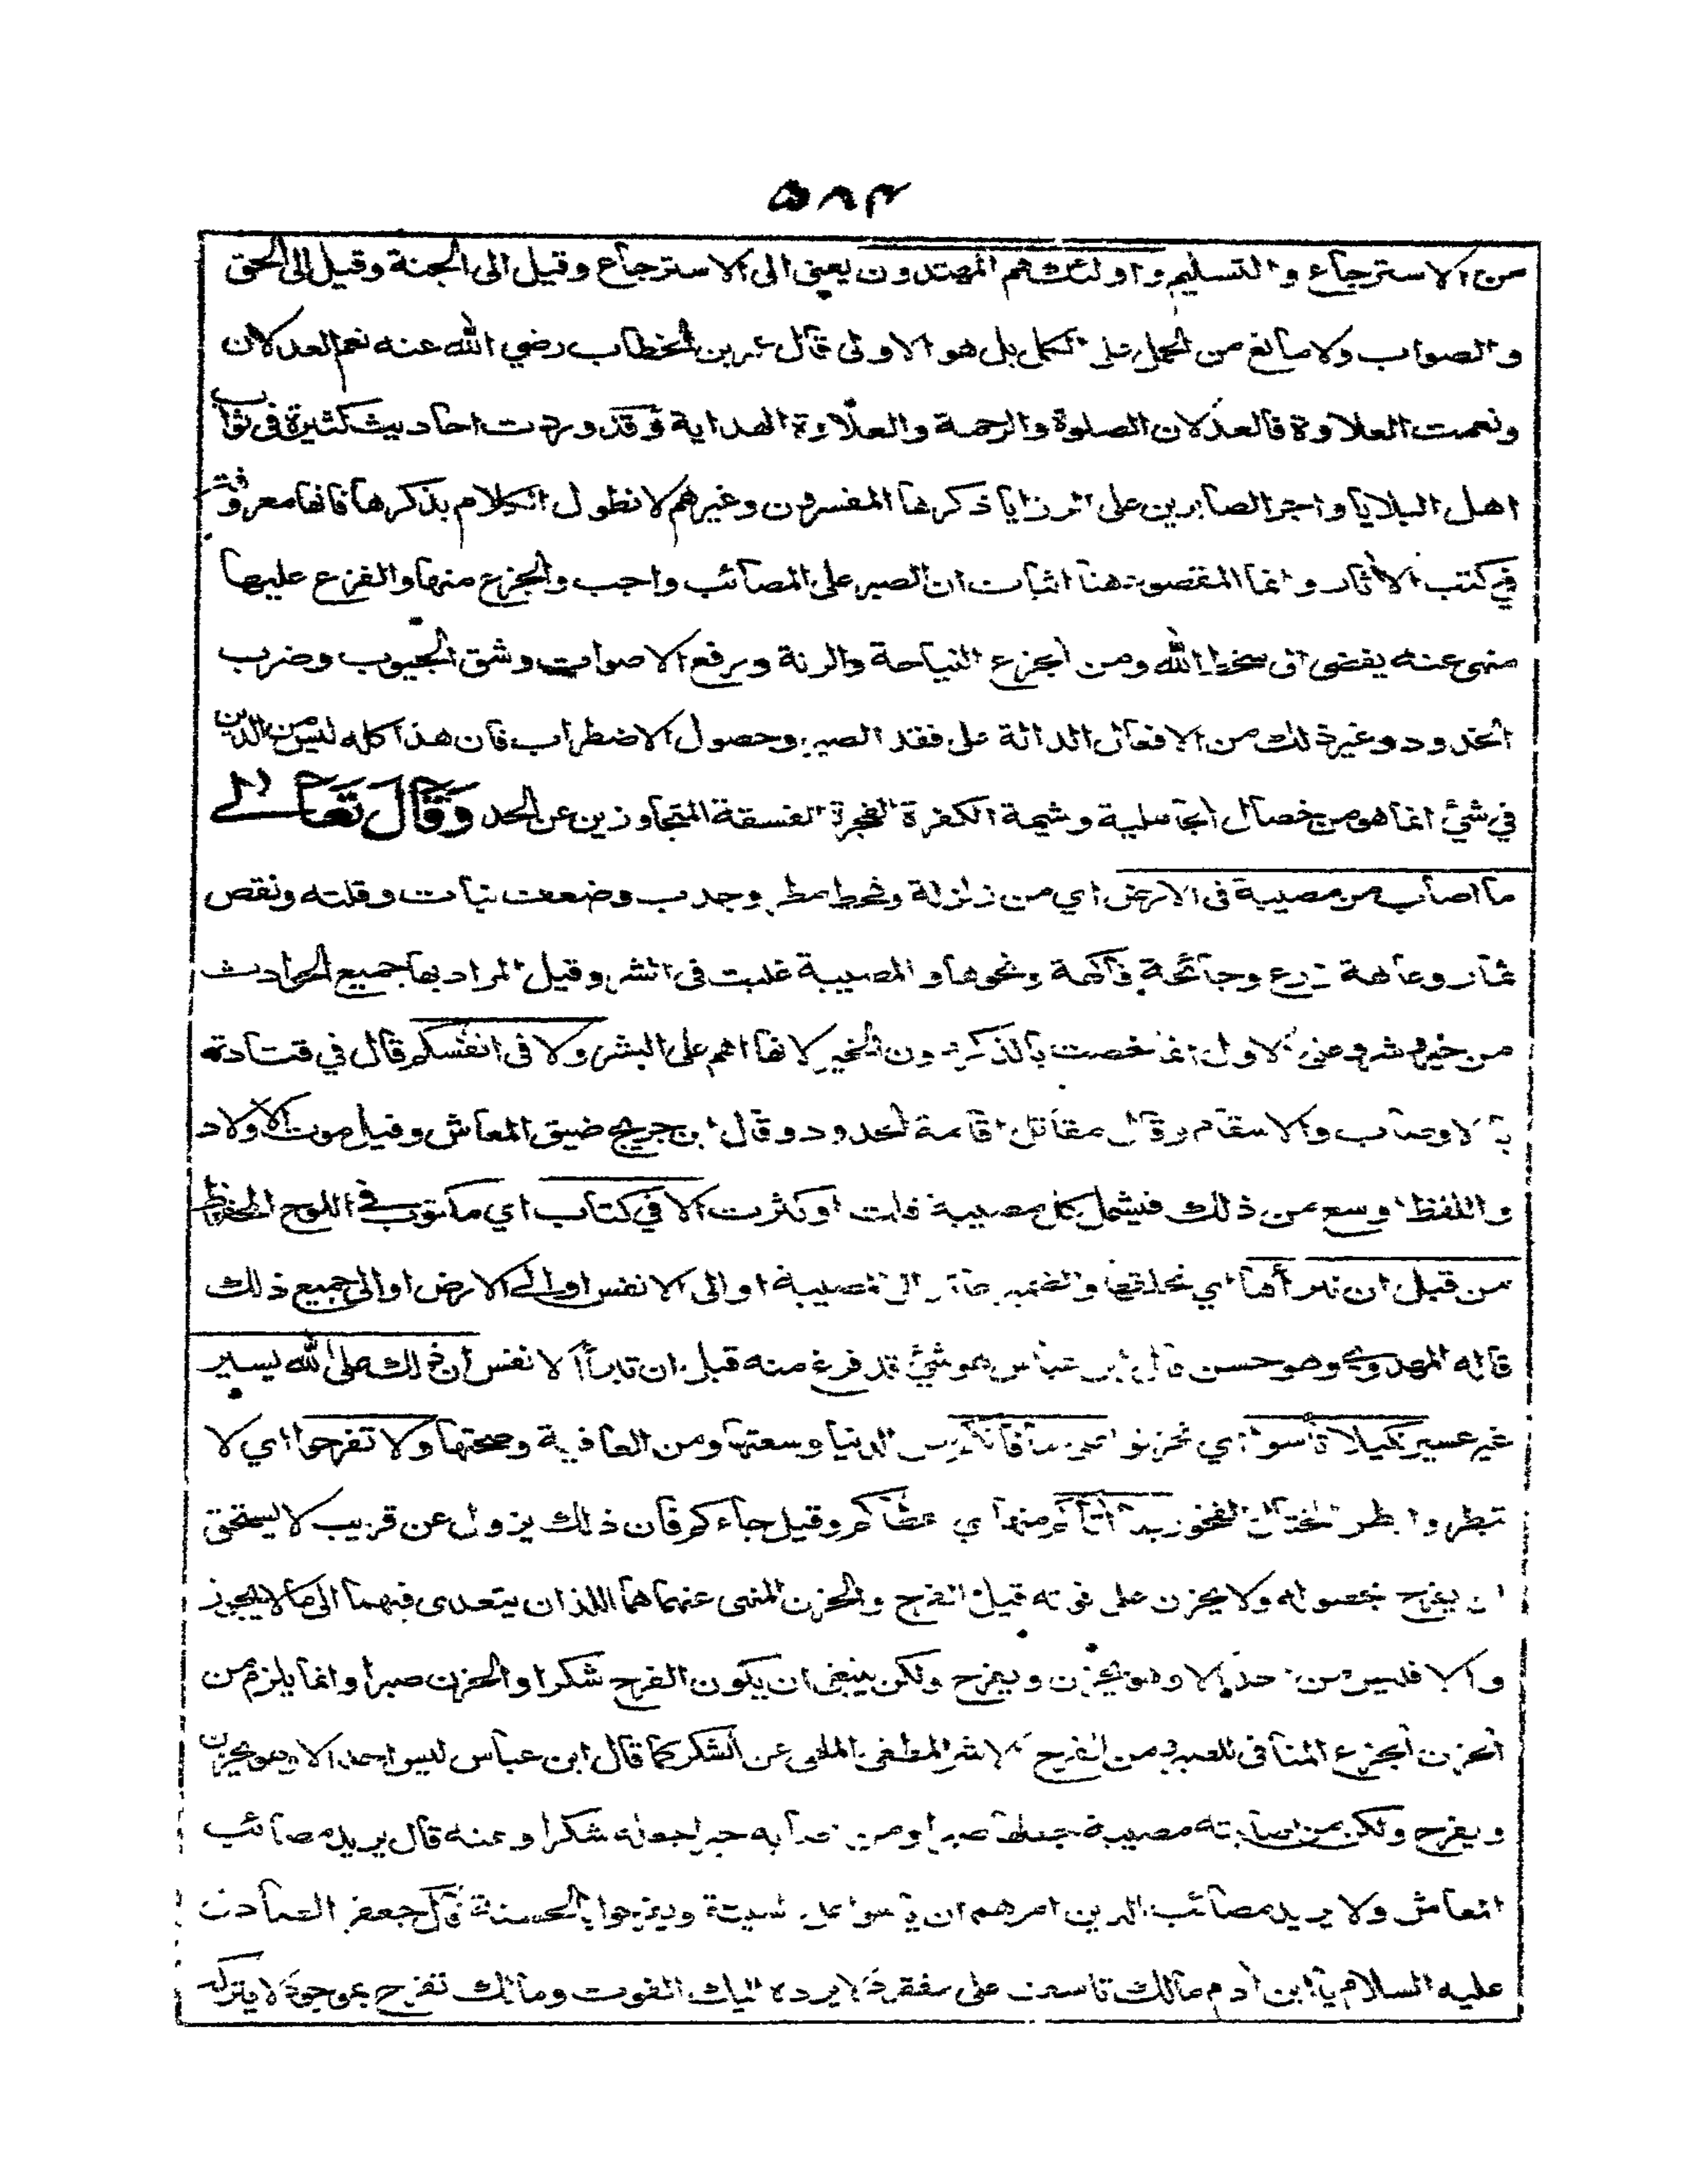 ٥٨٣
من الاسترجاع والتسليم واولئك هم المهتدون يعني الى الاسترجاع وقيل الى الجنة وقيل الى الحق
والصواب ولا مانع من الحمل على الكل بل هو الاولى قال عمر بن الخطاب رضي الله عنه نعم العدلان
ونعمت العلاوة فالعدلان الصلوة والرحمة والعلاوة الهداية وقد وردت احاديث كثيرة في ثواب
اهل البلايا واجر الصابرين على الرزايا ذكرها المفسرون وغيرهم لا نطول الكلام بذكرها فانها معروفة
في كتب الأثار وانما المقصود هنا اثبات ان الصبر على المصائب واجب والجزع منها والفزع عليها
منهى عنه يفضى الى سخط الله ومن الجزع النياحة والرنة ورفع الاصوات وشق الجيوب وضرب
الخدود وغير ذلك من الافعال الدالة على فقد الصبر وحصول الاضطراب فان هذا كله ليس من الدين
في شئ انما هو من خصال الجاهلية وشيمة الكفرة الفجرة الفسقة المتجاوزين عن الحد وَقَالَ تَعَالے
ما اصاب من مصيبة فى الارض اي من زلزلة وقحط مطر وجدب وضعف نبات وقلته ونقص
ثمار وعاهة زرع وجائحة فاكهة ونحوها والمصيبة غلبت فى الشر وقيل المراد بها جميع الحوادث
من خير وشر وعلى الاول انما خصت بالذكر دون الخير لانها اهم على البشر ولا فى انفسكم قال في قتادة
بالاوصاب والاسقام وقال مقاتل اقامة الحدود وقال ابن جريج ضيق المعاش وقيل موت الاولاد
واللفظ اوسع من ذلك فيشمل كل مصيبة قلت او كثرت الا في كتاب اي مكتوب في اللوح المحفوظ
من قبل ان نبرأها اي نخلقها والضمير عائد الى المصيبة او الى الانفس او الى الارض او الى جميع ذلك
قاله المهدوي وهو حسن قال ابن عباس هو شئ قد فرغ منه قبل ان تبرأ الانفس ان ذلك على الله يسير
غير عسير لكيلا تأسوا اي تحزنوا على ما فاتكم من الدنيا وسعتها ومن العافية وصحتها ولا تفرحوا اي لا
تبطروا بطر المختال الفخور بما أتاكم منها اي اعطاكم وقيل جاءكم فان ذلك يزول عن قريب لا يستحق
ان يفرح بحصوله ولا يحزن على فوته قيل الفرح والحزن المنهى عنهما هما اللذان يتعدى فيهما الى ما لا يجوز
والا فليس من احد الا وهو يحزن ويفرح ولكن ينبغي ان يكون الفرح شكرا والحزن صبرا وانما يلزم من
الحزن الجزع المنافى للصبر ومن الفرح الاشر المطغى الملهى عن الشكر كما قال ابن عباس ليس احد الا وهو يحزن
ويفرح ولكن من اصابته مصيبة جعلها صبرا ومن اصابه خير جعله شكرا وعنه قال يريد مصائب
المعاش ولا يريد مصائب الدين امرهم ان ياسوا على السيئة ويفرحوا بالحسنة قال جعفر الصادق
عليه السلام يا ابن أدم مالك تاسف على مفقود لا يرده اليك الفوت ومالك تفرح بموجود لا يتركه